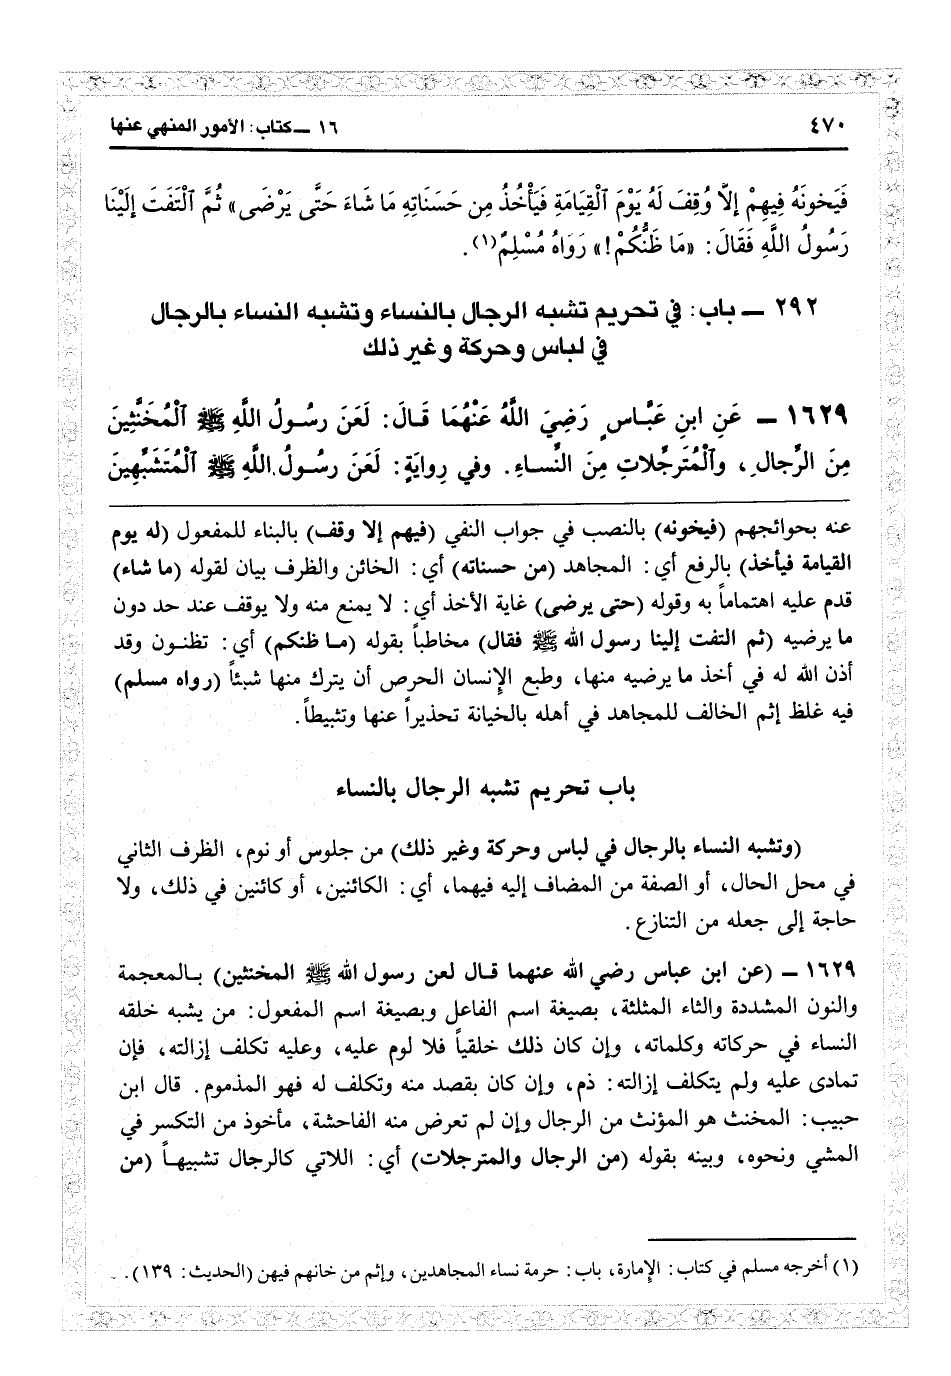 ٤٧٠
١٦ ــ كتاب: الأمور المنهي عنها
فَيَخونَهُ فِيهِمْ إلَّا وُقِفَ لَهُ يَوْمَ ٱلْقِيَامَةِ فَيَأْخُذُ مِن حَسَنَاتِهِ مَا شَاءَ حَتَّى يَرْضَى» ثُمَّ ٱلْتَفَتَ إلَيْنَا
رَسُولُ اللَّهِ فَقَالَ: «مَا ظَنُّكُمْ!» رَوَاهُ مُسْلِمٌ(١).
٢٩٢ ــ باب: في تحريم تشبه الرجال بالنساء وتشبه النساء بالرجال
في لباس وحركة وغير ذلك
١٦٢٩ ــ عَنِ ابنِ عَبَّاسٍ رَضِيَ اللَّهُ عَنْهُمَا قَالَ: لَعَنَ رسُولُ اللَّهِ ﷺ ٱلْمُخَنَّثِينَ
مِنَ الرِّجالِ، وٱلْمُتَرجِّلاتِ مِنَ النِّساءِ. وفي رِوايَةٍ: لَعَنَ رسُولُ اللَّهِ ﷺ ٱلْمُتَشَبِّهِينَ
عنه بحوائجهم (فيخونه) بالنصب في جواب النفي (فيهم إلا وقف) بالبناء للمفعول (له يوم
القيامة فيأخذ) بالرفع أي: المجاهد (من حسناته) أي: الخائن والظرف بيان لقوله (ما شاء)
قدم عليه اهتماماً به وقوله (حتى يرضى) غاية الأخذ أي: لا يمنع منه ولا يوقف عند حد دون
ما يرضيه (ثم التفت إلينا رسول الله ﷺ فقال) مخاطباً بقوله (ما ظنكم) أي: تظنون وقد
أذن الله له في أخذ ما يرضيه منها، وطبع الإنسان الحرص أن يترك منها شيئاً (رواه مسلم)
فيه غلظ إثم الخالف للمجاهد في أهله بالخيانة تحذيراً عنها وتثبيطاً.
باب تحريم تشبه الرجال بالنساء
(وتشبه النساء بالرجال في لباس وحركة وغير ذلك) من جلوس أو نوم، الظرف الثاني
في محل الحال، أو الصفة من المضاف إليه فيهما، أي: الكائنين، أو كائنين في ذلك، ولا
حاجة إلى جعله من التنازع.
١٦٢٩ ــ (عن ابن عباس رضي الله عنهما قال لعن رسول الله ﷺ المخنثين) بالمعجمة
والنون المشددة والثاء المثلثة، بصيغة اسم الفاعل وبصيغة اسم المفعول: من يشبه خلقه
النساء في حركاته وكلماته، وإن كان ذلك خلقياً فلا لوم عليه، وعليه تكلف إزالته، فإن
تمادى عليه ولم يتكلف إزالته: ذم، وإن كان بقصد منه وتكلف له فهو المذموم. قال ابن
حبيب: المخنث هو المؤنث من الرجال وإن لم تعرض منه الفاحشة، مأخوذ من التكسر في
المشي ونحوه، وبينه بقوله (من الرجال والمترجلات) أي: اللاتي كالرجال تشبيهاً (من
(١) أخرجه مسلم في كتاب: الإمارة، باب: حرمة نساء المجاهدين، وإثم من خانهم فيهن (الحديث: ١٣٩).